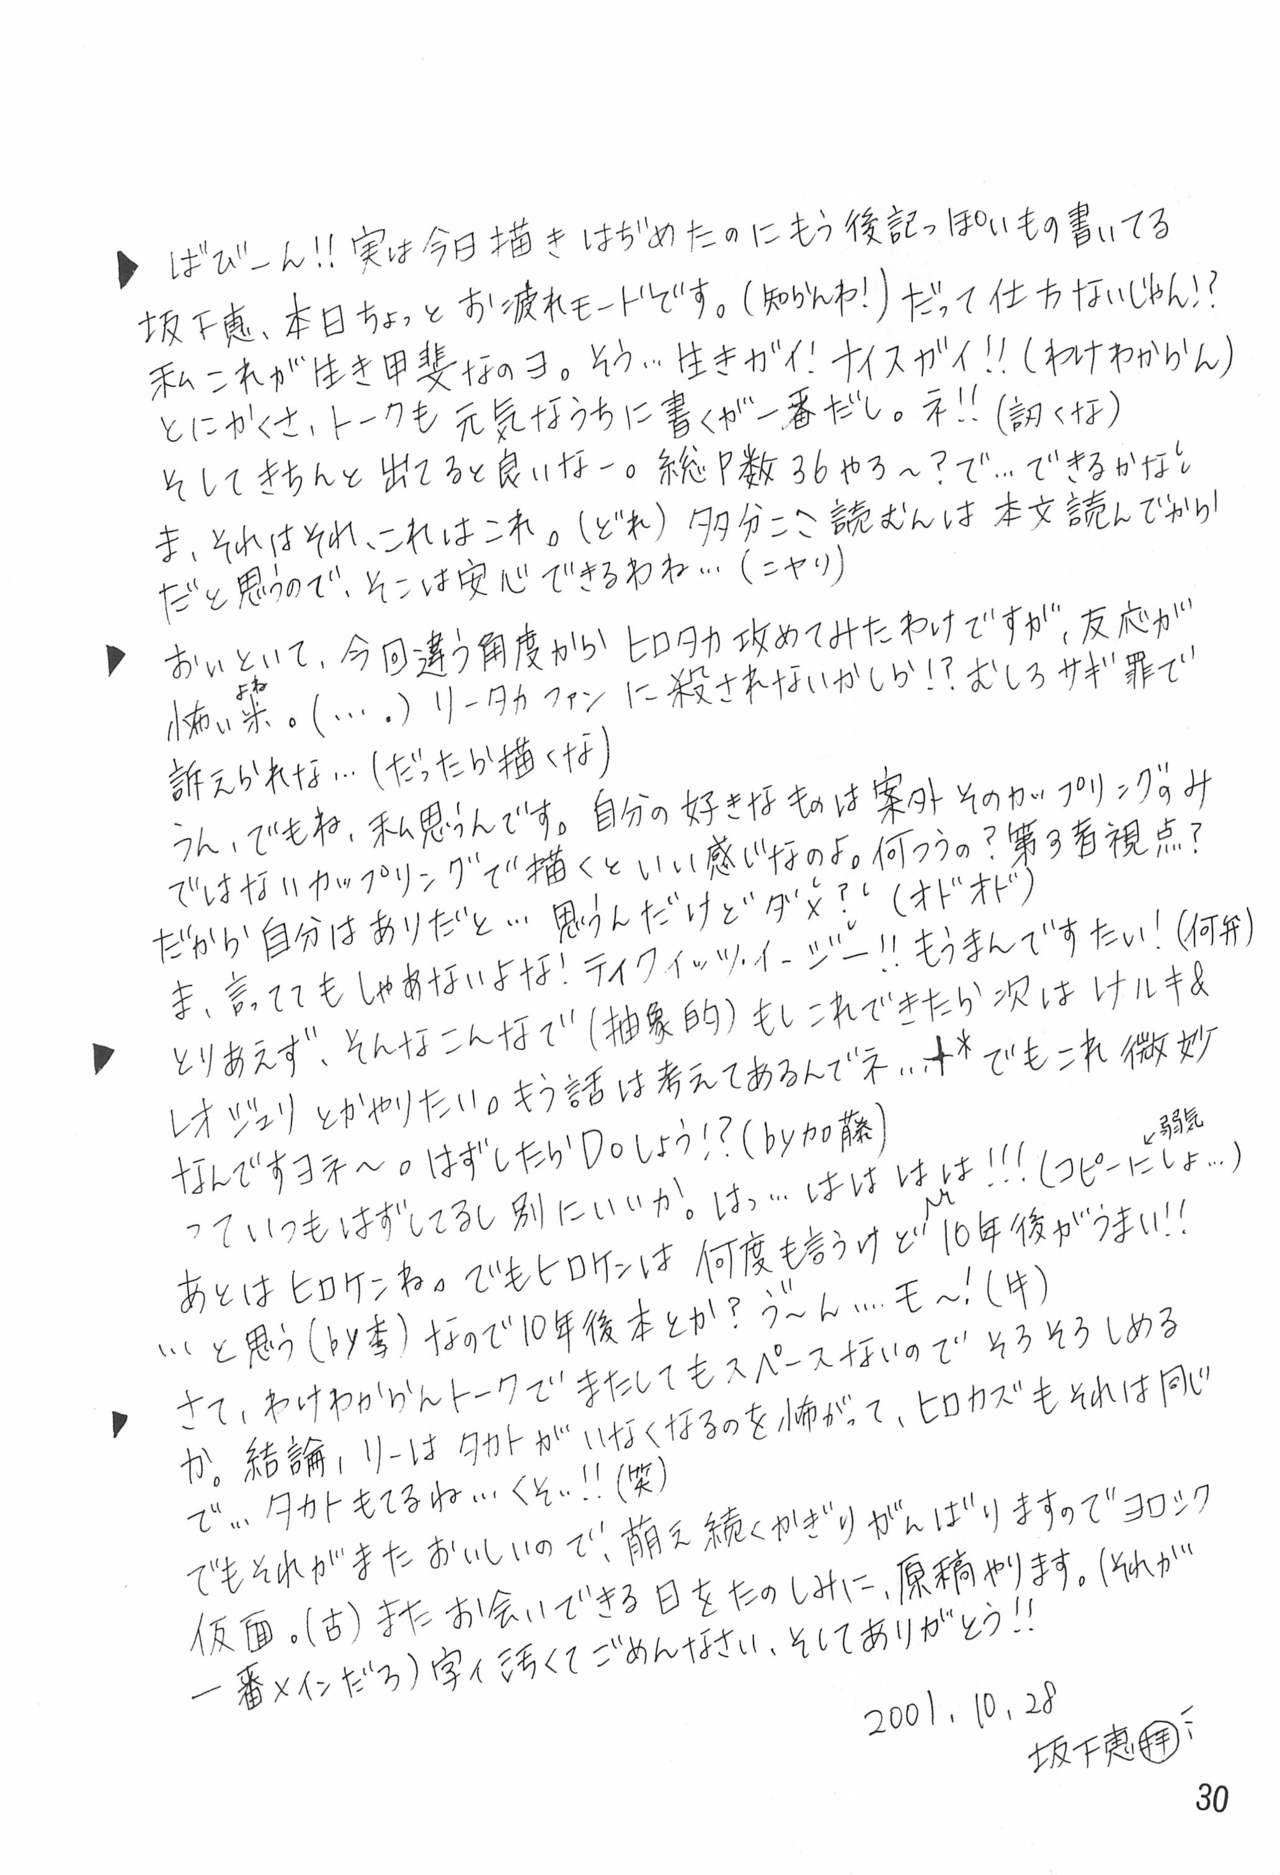 ▶ ばびーん!! 実は今日描きはぢめたのにもう後記っぽいもの書いてる
坂下恵、本日ちょっとお疲れモードです。(知らんわ!) だって仕方ないじゃん!?
私これが生き甲斐なのヨ。そう…生きガイ! ナイスガイ!! (わけわからん)
とにかくさ、トークも元気なうちに書くが一番だし。ネ!! (訊くな)
そしてきちんと出てると良いなー。総P数36やろ〜? で…できるかな
ま、それはそれ、これはこれ。(どれ) 多分ここ読むんは本文読んでから
だと思うので、そこは安心できるわね… (ニヤリ)
▶ おいといて、今回違う角度からヒロタカ攻めてみたわけですが、反応が
怖い米。(….) リータカファンに殺されないかしら!? むしろサギ罪で
よね
訴えられな… (だったら描くな)
うん、でもね、私思うんです。自分の好きなものは案外そのカップリングのみ
ではないカップリングで描くといい感じなのよ。何つうの? 第3者視点?
だから自分はありだと… 思うんだけどダメ? (オドオド)
ま、言っててもしゃあないよな! テイクイッツ・イージー!! もうまんですたい! (何弁)
▶ とりあえず、そんなこんなで (抽象的) もしこれできたら次はナルキ&
レオジュリとかやりたい。もう話は考えてあるんでネ… でもこれ微妙
なんですヨネ〜。はずしたらDoしよう!? (by加藤)
っていつもはずしてるし別にいいか。はっ… はははは!!! (コピーにしょ…)
←弱気
あとはヒロケンね。でもヒロケンは何度も言うけど10年後がうまい!!
…と思う (by李) なので10年後本とか? ゔ〜ん…. モ〜! (牛)
▶ さて、わけわからんトークでまたしてもスペースないのでそろそろしめる
か。結論、リーはタカトがいなくなるのを怖がって、ヒロカズもそれは同じ
で… タカトもてるね… くそぃ!! (笑)
でもそれがまたおいしいので、萌え続くかぎりがんばりますのでヨロシク
仮面。(古) またお会いできる日をたのしみに、原稿やります。(それが
一番メインだろ) 字ィ汚くてごめんなさい、そしてありがとう!!
2001.10.28
坂下恵 拝
30